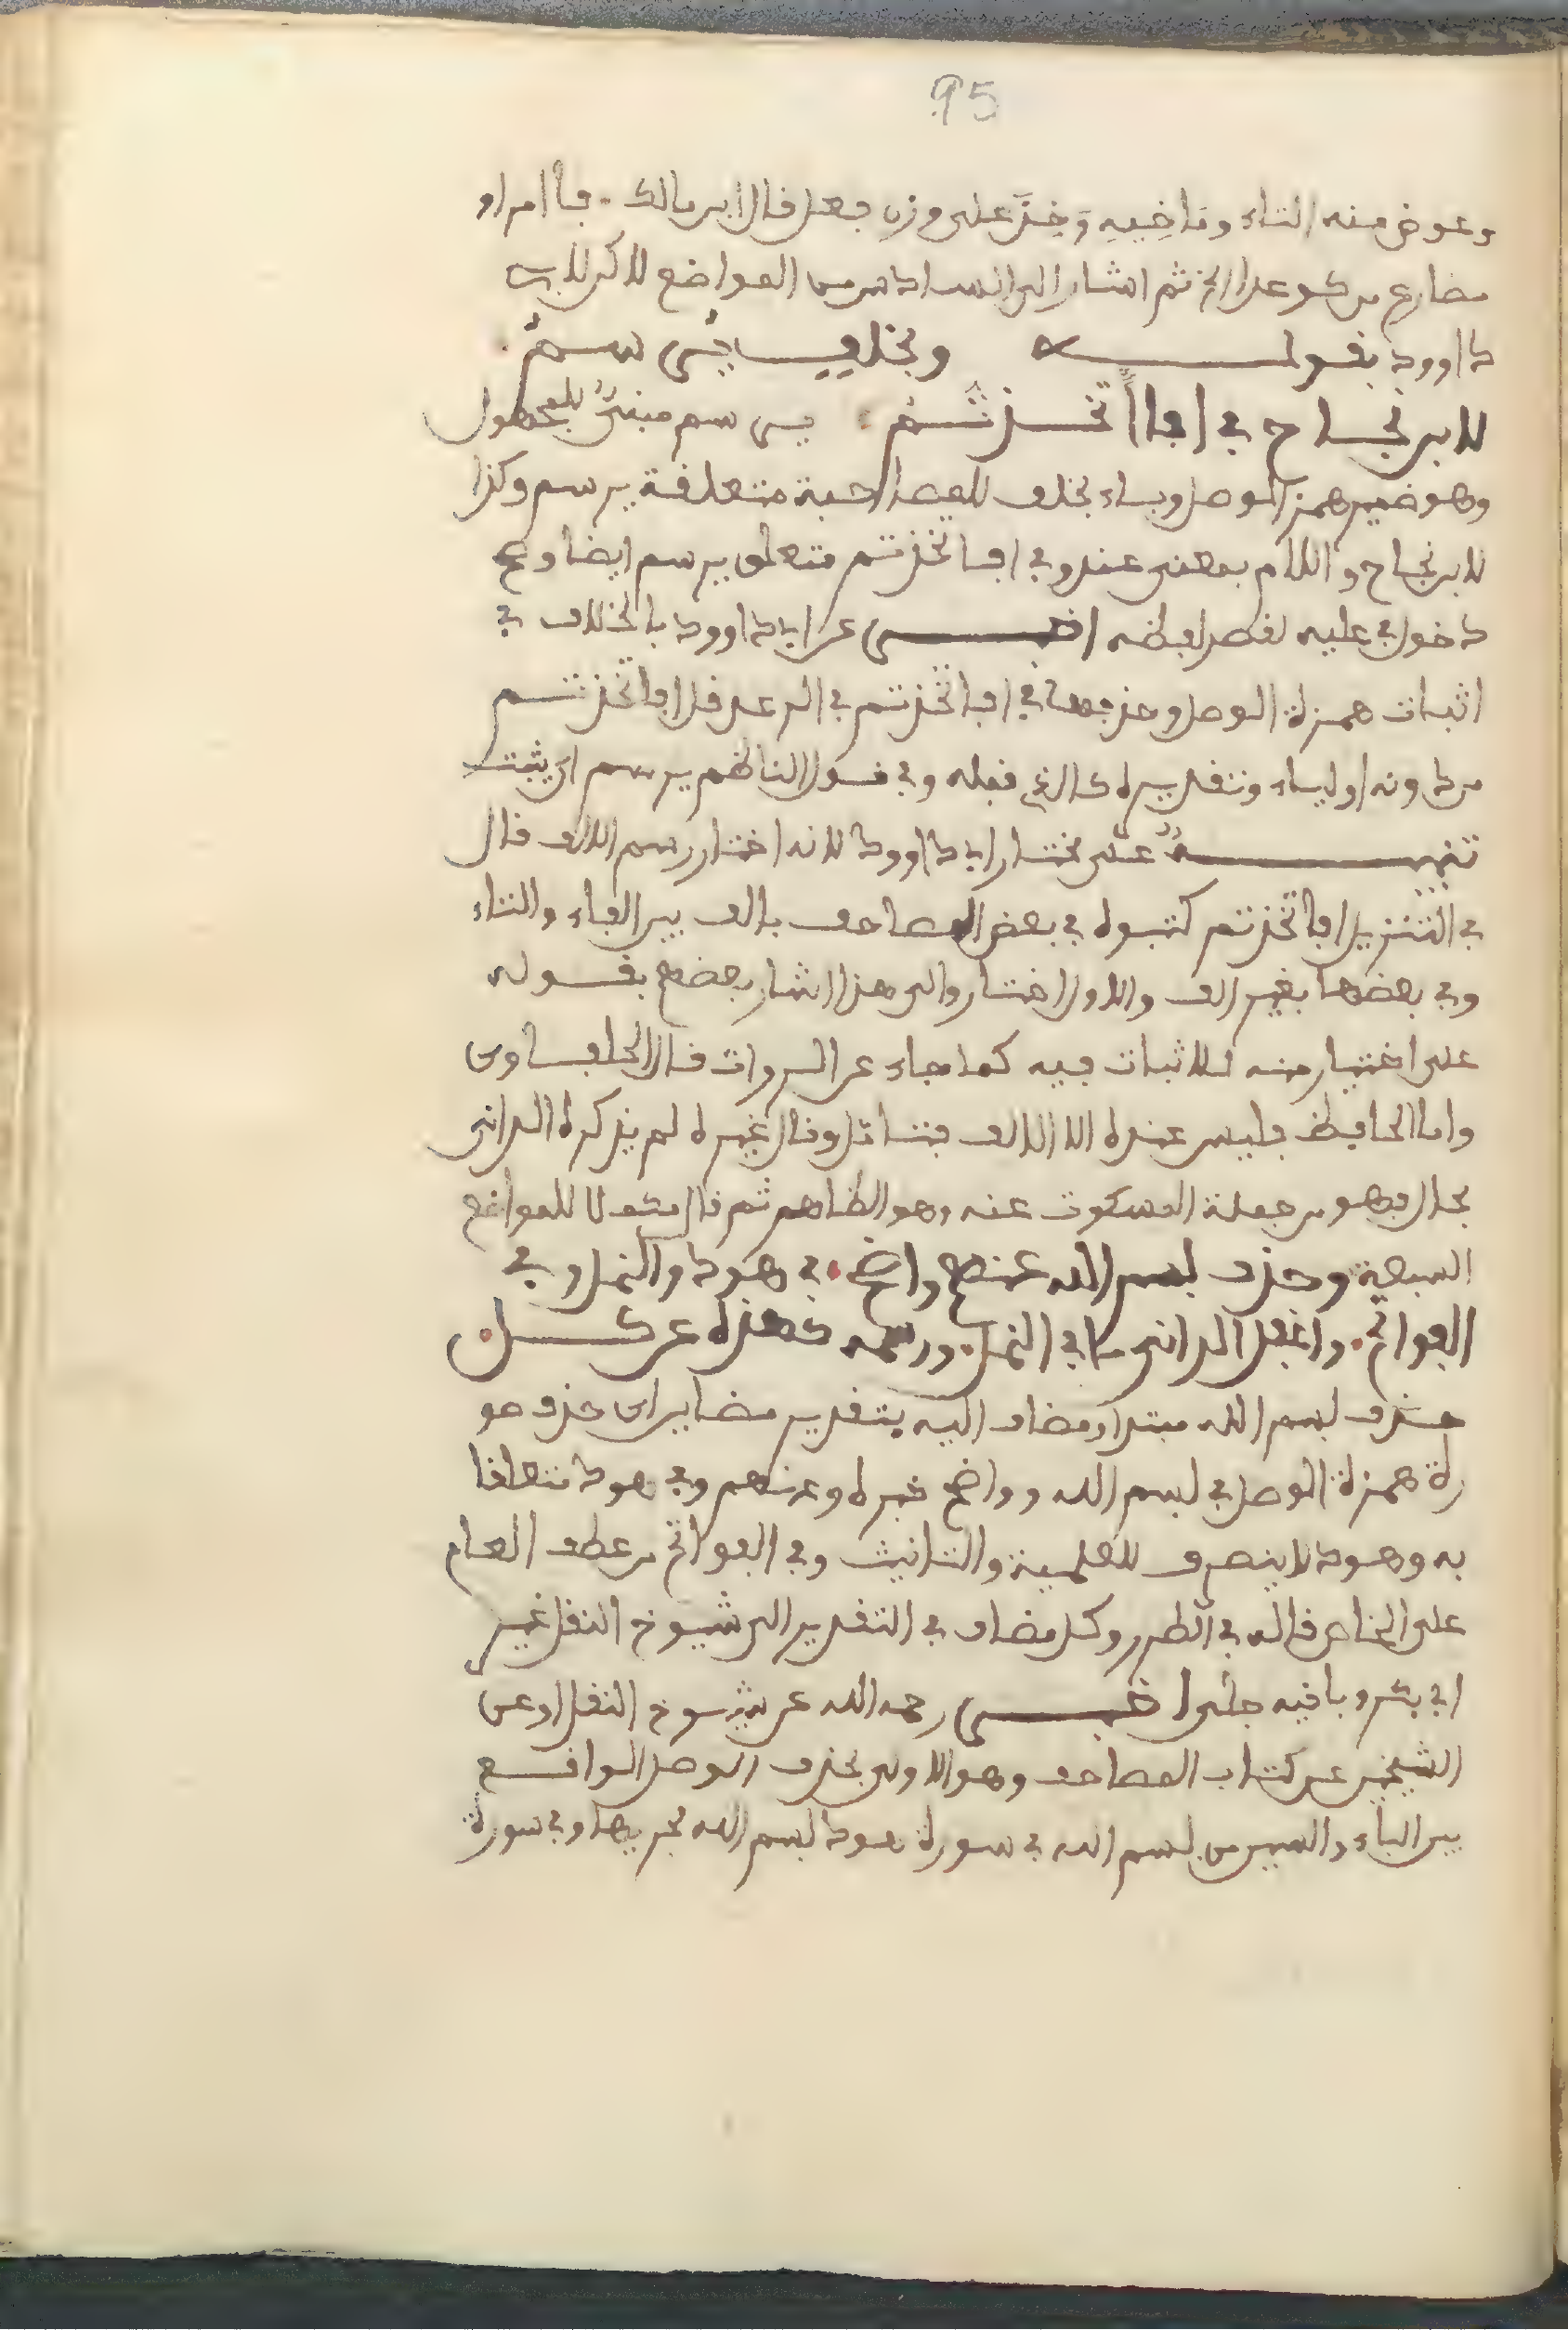 95
وعوض منه التاء وتا خذيه وَخِذَ على وزن فعل قال ابن مالك . فا امر او
مضارع من كوعد الخ ثم اشار الى السادس من المواضع لاكن لابى
داوود بقولــــه وبخلف يُرسمُ .
لابن نجاح فى افاتّخذتمُ . يرسم مبنىٌّ للمجهول
وهو ضمير همز الوصل وباء بخلف للمصاحبة متعلقة بيرسم وكذا
لابن نجاح واللام بمعنى عند وفى افاتخذتم متعلق بيرسم ايضا وفى
دخول فى عليه لقصد لفظه اخبــر عن ابى داوود بالخلاف فى
اثبات همزة الوصل وحذفها فى افاتّخذتم فى الرعد قل افاتّخذتــم
من دونه اولياء وتقديره كالذى قبله وفى قول الناظم يرسم اى يثبت
تنبيــهٌ على مختار ابى داوود لانه اختار رسم الالف قال
فى التنزيل افاتّخذتم كتبوه فى بعض المصاحف بالف بين الفاء والتاء
وفى بعضها بغير الف والاول اختار والى هذا اشار بعضهم بقــوله
على اختيار منه للاثبات فيه كما جاء عن الرواة قال الحلفاوى
واما الحافظ فليس عنده الا الالف فتامّل وقال غيره لم يذكره الدانى
بحال فهو من جملة المسكوت عنه وهو الظاهر ثم قال مكملا للمواضع
السبعة وحذف بسم الله عنهم واضح . فى هود والنمل وفى
الفواتح . واغفل الدانى ما فى النمل . ورسمه كهذه عن كــل .
حذف بسم الله مبتدا ومضاف اليه بتقدير مضافين اى حذف صو
رة همزة الوصل فى بسم الله وواضح خبره وعنهم وفى هود متعلقا
به وهود لا ينصرف للعلمية والتانيث وفى الفواتح من عطف العام
على الخاص قاله فى الطرر وكل مضاف فى التقدير الى شيوخ النقل غير
ابى بكر وباقيه جلى اخبــر رحمه الله عن شيوخ النقل او عن
الشيخين عن كتاب المصاحف وهو الاولى بحذف الوصل الواقــع
بين الباء والسين من بسم الله فى سورة هود بسم الله مجريها وفى سورة